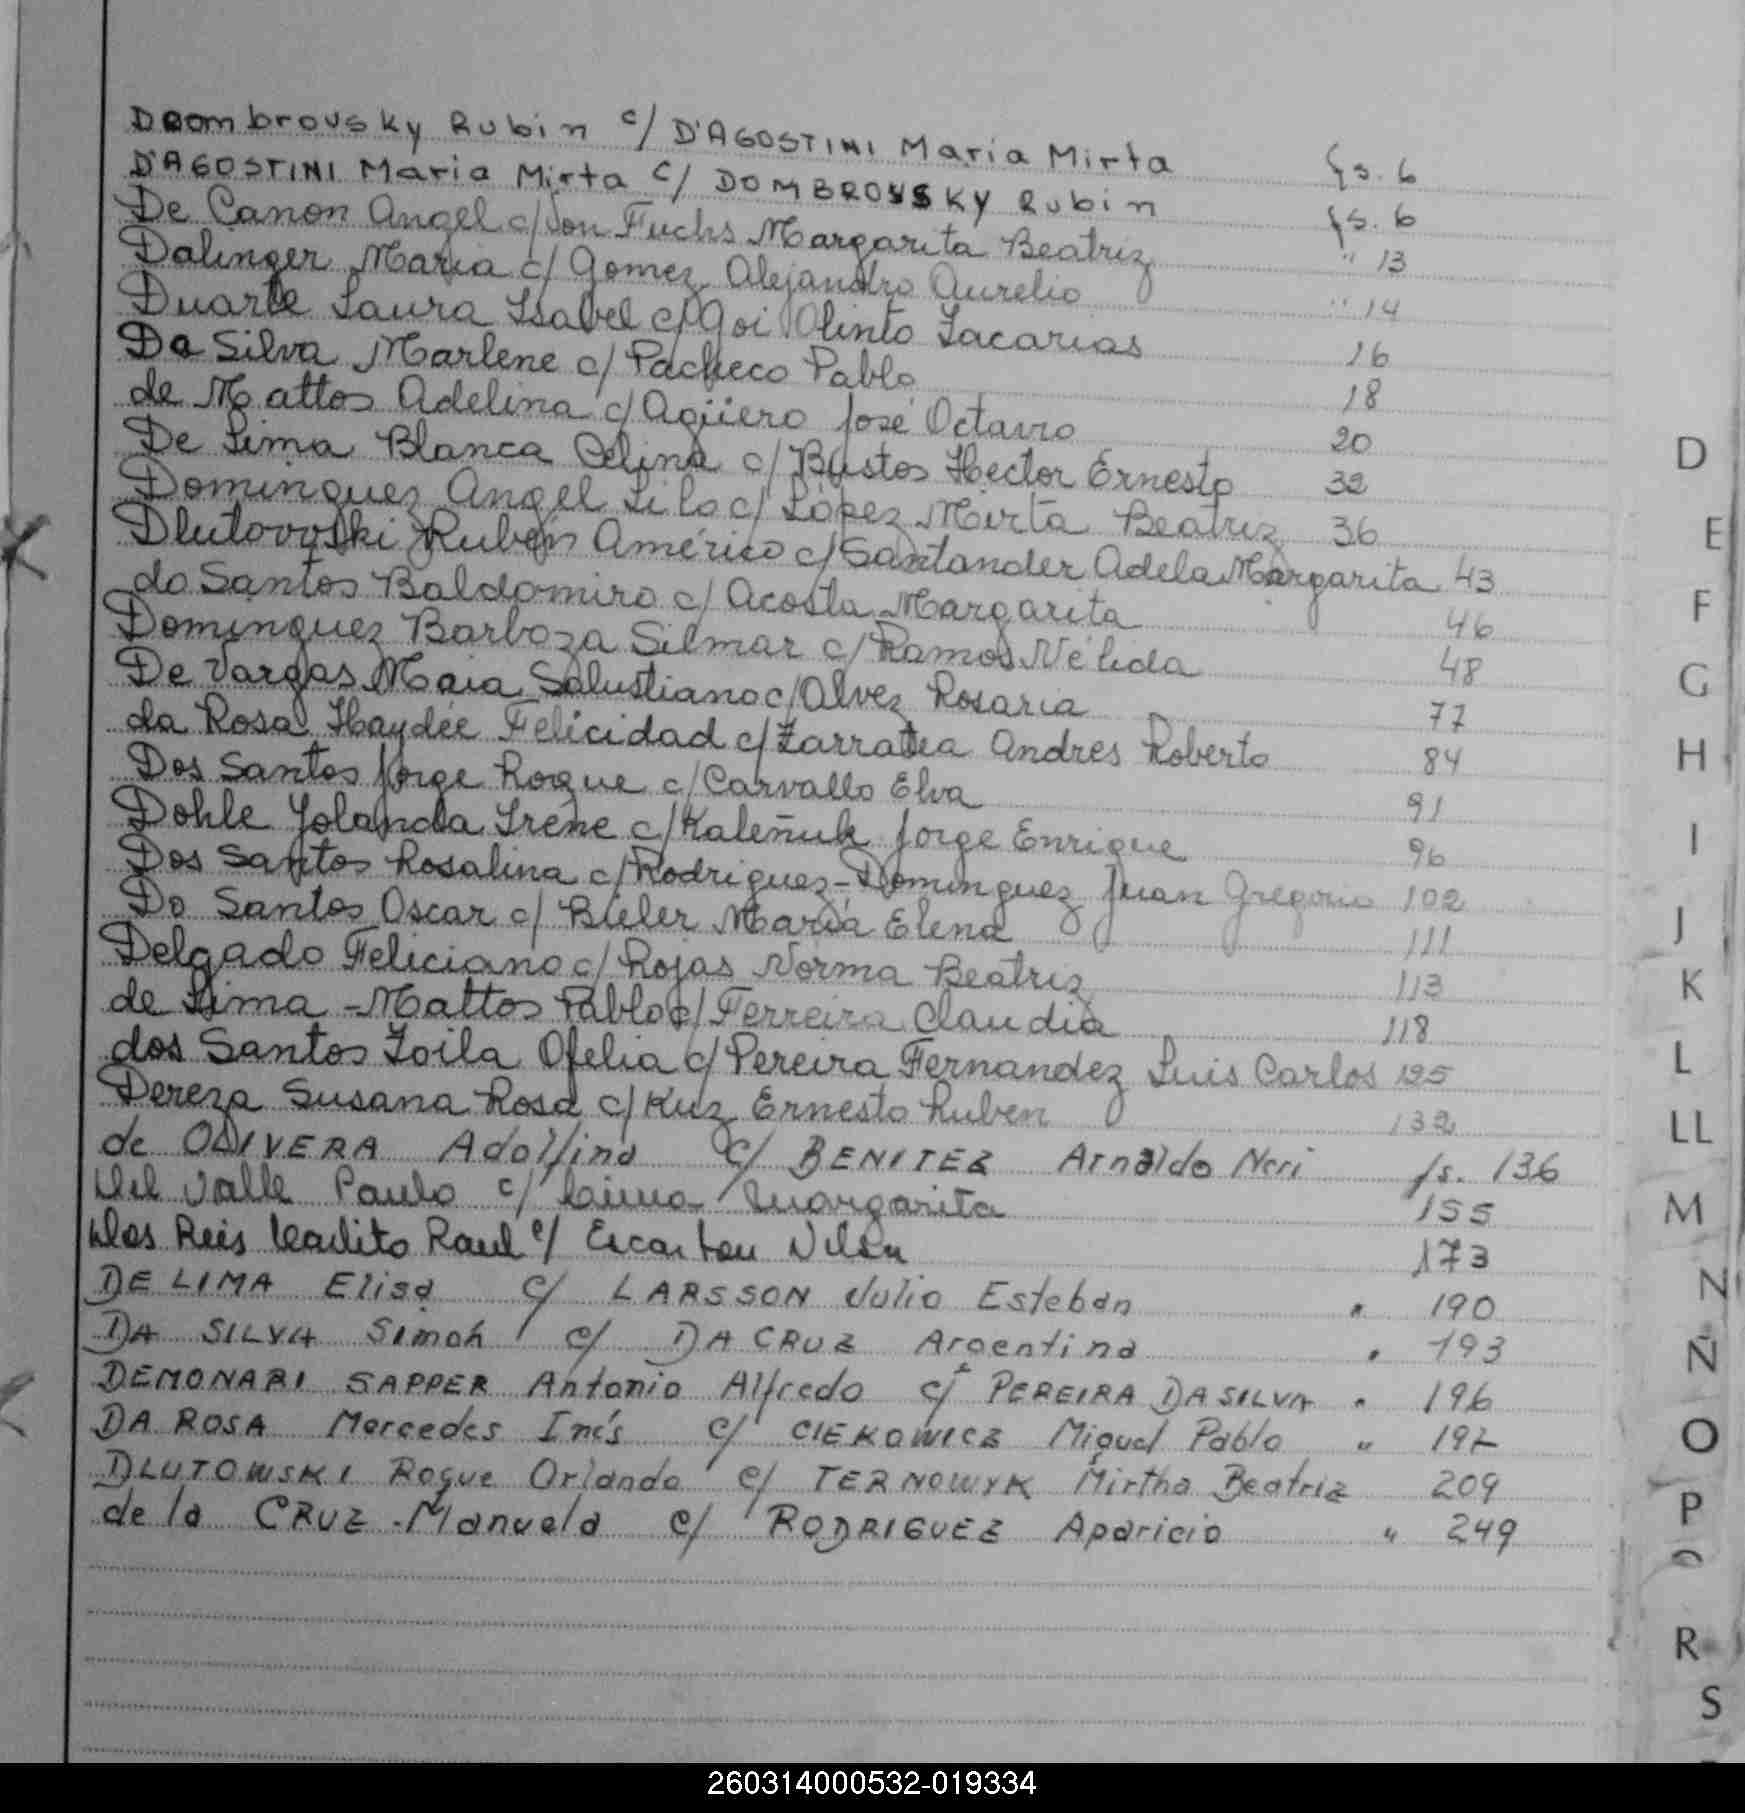 Doombrovsky Rubin c/ D'AGOSTINI Maria Mirta fs. 6
D'AGOSTINI Maria Mirta c/ DOMBROVSKY Rubin fs. 6
De Canon Angel c/ von Fuchs Margarita Beatriz " 13
Dalinger Maria c/ Gomez Alejandro Aurelio " 14
Duarte Laura Isabel c/ Goi Olinto Zacarias 16
Da Silva Marlene c/ Pacheco Pablo 18
de Mattos Adelina c/ Agüero José Octavio 20
De Lima Blanca Celina c/ Bustos Hector Ernesto 32
Dominguez Angel Lilo c/ López Mirta Beatriz 36
Dlutovoski Rubén Américo c/ Santander Adela Margarita 43
do Santos Baldomiro c/ Acosta Margarita 46
Dominguez Barboza Silmar c/ Ramos Nélida 48
De Vargas Maia Salustiano c/ Alvez Rosaria 77
da Rosa Haydée Felicidad c/ Zarratea Andres Roberto 84
Dos Santos Jorge Roque c/ Carvallo Elva 91
Dohle Yolanda Irene c/ Kaleñuk Jorge Enrique 96
Dos Santos Rosalina c/ Rodriguez-Dominguez Juan Gregorio 102
Do Santos Oscar c/ Bieler María Elena 111
Delgado Feliciano c/ Rojas Norma Beatriz 113
de Lima-Mattos Pablo c/ Ferreira Claudia 118
dos Santos Zoila Ofelia c/ Pereira Fernandez Luis Carlos 125
Dereza Susana Rosa c/ Kuz Ernesto Ruben 132
de OLIVERA Adolfina c/ BENITEZ Arnaldo Neri fs. 136
Del Valle Paulo c/ Margarita 155
Dos Reis Raul c/ 173
DE LIMA Elisa c/ LARSSON Julio Esteban " 190
DA SILVA Simon c/ DA CRUZ Argentina " 193
DEMONARI SAPPER Antonio Alfredo c/ PEREIRA DA SILVA " 196
DA ROSA Mercedes Inés c/ CIEKOWICZ Miguel Pablo " 197
DLUTOWSKI Roque Orlando c/ TERNOWYK Mirtha Beatriz 209
de la CRUZ Manuela c/ RODRIGUEZ Aparicio " 249
D
E
F
G
H
I
J
K
L
LL
M
N
Ñ
O
P
R
S
260314000532-019334